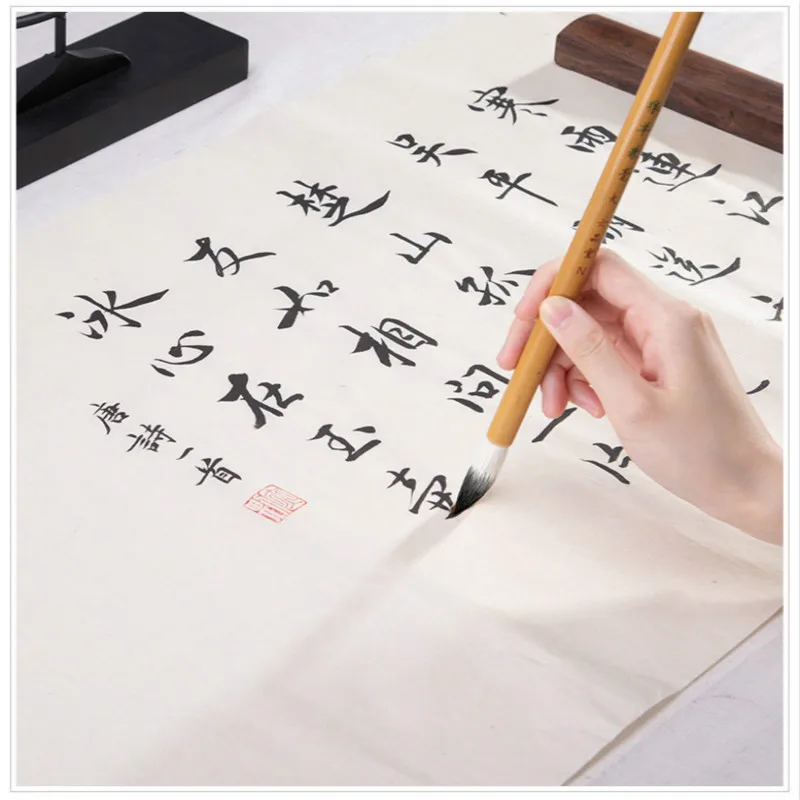 寒雨連江
吳平明送
楚山孤
友如相問一片
冰心在玉壺
唐詩一首